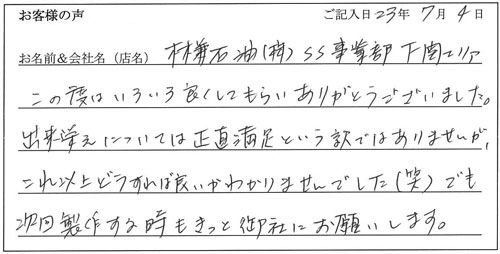 お客様の声 ご記入日 23年 7月 4日
お名前&会社名(店名) 林兼石油(株) SS事業部 下関エリア
この度はいろいろ良くしてもらいありがとうございました。
出来栄えについては正直満足という訳ではありませんが、
これ以上どうすれば良いかわかりませんでした(笑)でも
次回製作する時もきっと御社にお願いします。